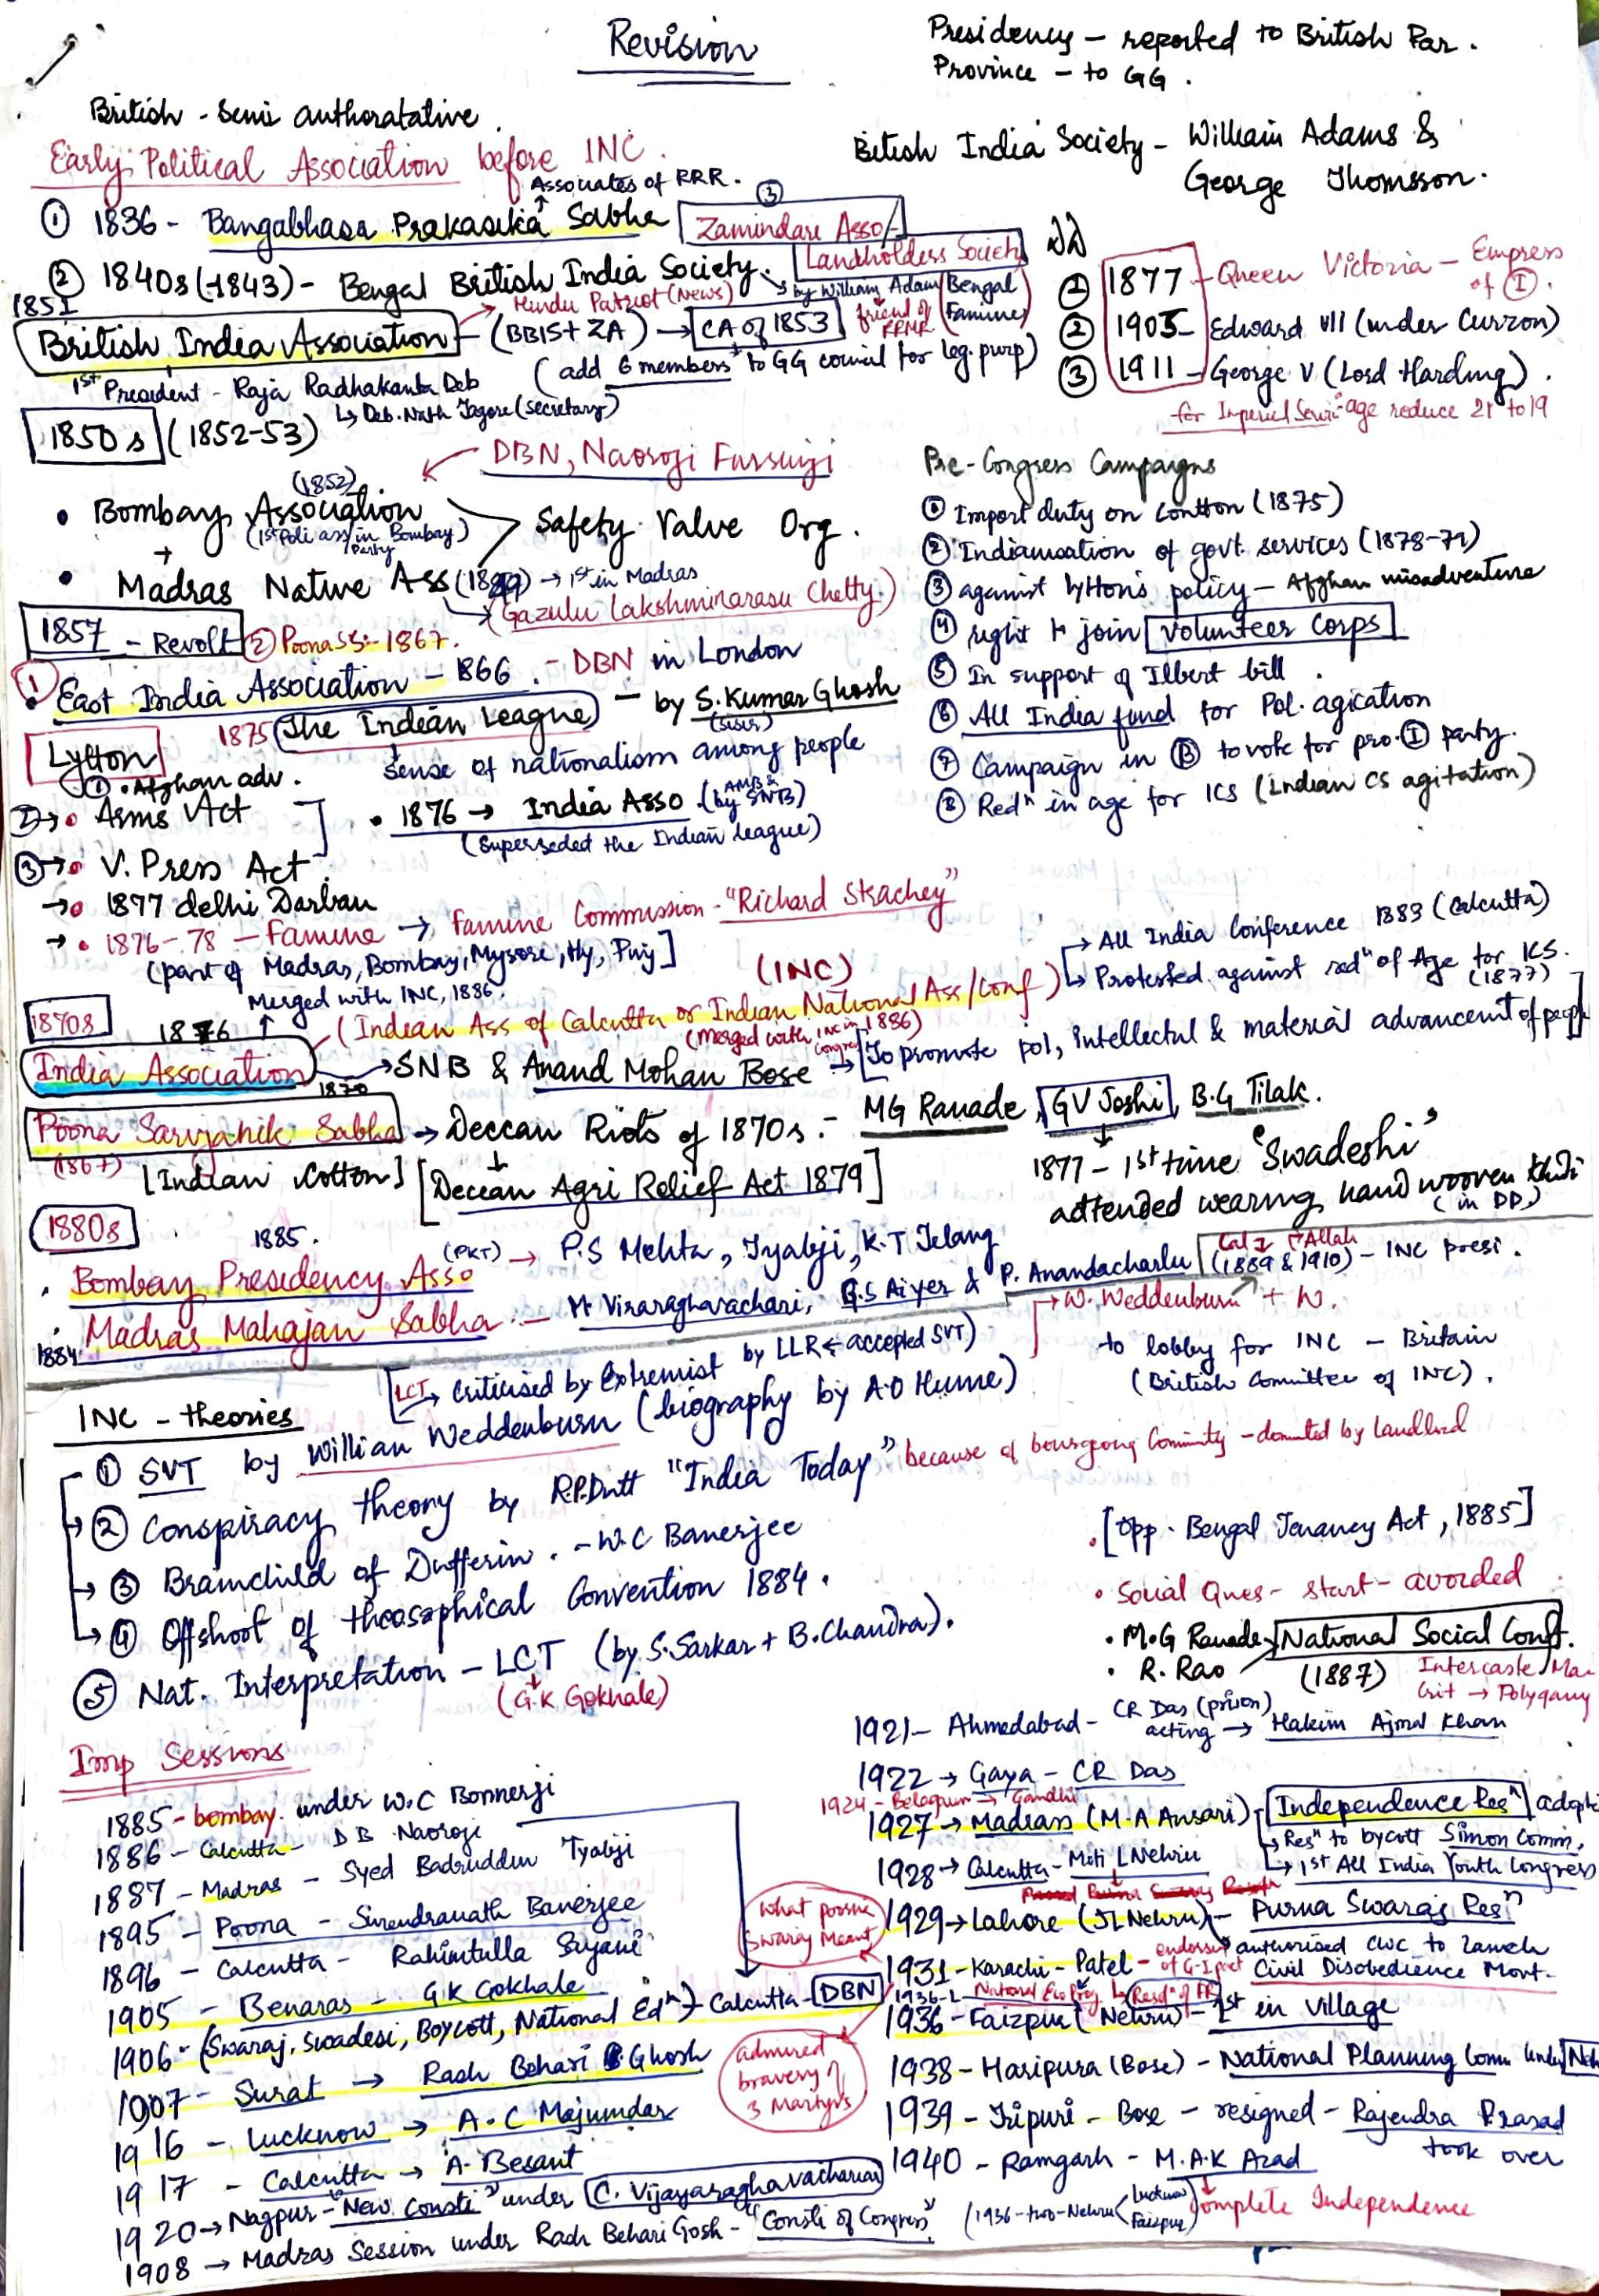 Revision
Presidency - reported to British Par.
Province - to GG.
British - Semi authoratative.
Early Political Association before INC.
Associates of RRR.
British India Society - William Adams & George Thomsson.
① 1836 - Bangabhasa Prakasika Sabha
③ Zamindari Asso/-
Landholders Society
② 1840s (-1843) - Bengal British India Society.
by William Adam
friend of RRMR
Bengal Famine
Hindu Patriot (News)
1851
British India Association - (BBIS + ZA) → CA of 1853
(add 6 members to GG council for leg. purp)
1st President - Raja Radhakanta Deb
↳ Deb. Nath Tagore (secretary)
DD
① 1877 - Queen Victoria - Empress of Ⓘ.
② 1903 - Edward VII (under Curzon)
③ 1911 - George V (Lord Harding).
for Imperial Servi. age reduce 21 to 19
1850s (1852-53)
DBN, Naoroji Fursunji
• Bombay Association (1852)
(1st Poli ass/party in Bombay)
• Madras Native Ass (1849) → 1st in Madras
Safety Valve Org.
→ (Gazulu Lakshminarasu Chetty.)
1857 - Revolt
② Poona SS:- 1867.
① • East India Association - 1866. - DBN in London
1875 The Indian League - by S. Kumar Ghosh
(Sisir)
sense of nationalism among people
Lytton
① • Afghan adv.
② → • Arms Act
③ → • V. Press Act
→ • 1877 delhi Darban
→ • 1876-78 - Famine → Famine Commission - "Richard Strachey"
(part of Madras, Bombay, Mysore, Hy, Punj]
• 1876 → India Asso. (by AMB & SNB)
(Superseded the Indian league)
Pre-Congress Campaigns
① Import duty on Contton (1875)
② Indianisation of govt. services (1878-79)
③ against lyttons policy - Afghan misadventure
④ right to join Volunteer Corps
⑤ In support of Ilbert bill.
⑥ All India fund for Pol. agication
⑦ Campaign in Ⓑ to vote for pro. Ⓘ party.
⑧ Redn in age for ICS (Indian CS agitation)
Merged with INC, 1886.
(INC)
→ All India Conference 1883 (Calcutta)
↳ Protested against redn of Age for ICS. (1877)
1870s
1876
(Indian Ass of Calcutta or Indian National Ass/Conf)
(merged with INC in 1886)
Congress
India Association → SNB & Anand Mohan Bose → [To promote pol, intellectul & material advancemt of people]
1870
Poona Sarvjanik Sabha → Deccan Riots of 1870s. - MG Ranade, GV Joshi, B.G Tilak.
(1867)
[Indian Cotton] [Deccan Agri Relief Act 1879]
1877 - 1st time "Swadeshi"
adtended wearing hand wooven khadi
(in DD)
1880s
1885.
• Bombay Presidency Asso (PKT) → P.S Mehta, Tyabji, K.T Telang
• Madras Mahajan Sabha - M Viraraghavachari, G.S Aiyer & P. Anandacharlu
1884
Cal Allah
(1889 & 1910) - INC presi.
→ W. Weddenburn + W.
to lobby for INC - Britain
(British Committee of INC).
INC - theories
LCT → Criticised by Extremist by LLR ← accepted SVT)
① SVT by Willian Weddenburn (biography by A.O Hume)
② Conspiracy theory by R.P.Dutt "India Today" because of bourgeong Comminity - domnted by landlord
③ Brainchild of Dufferin. - W.C Banerjee
④ Offshoot of theosophical Convention 1884.
⑤ Nat. Interpretation - LCT (by S. Sarkar + B. Chandra).
(G.K Gokhale)
• [Opp. Bengal Tenancy Act, 1885]
• Social Ques - start - avorded
• M.G Ranade
• R. Rao
National Social Conf.
(1887)
Intercaste Ma-
Crit → Polygamy
Imp Sessions
1885 - bombay. under W.C Bonnerji
1886 - Calcutta - D B Naoroji
1887 - Madras - Syed Badruddin Tyabji
1895 - Poona - Surendranath Banerjee
1896 - Calcutta - Rahimtulla Sayani
1905 - Benaras - G K Gokhale
1906 - (Swaraj, Swadesi, Boycott, National Edn) - Calcutta - DBN
1907 - Surat → Rash Behari Ghosh
1916 - Lucknow → A.C Majumdar
1917 - Calcutta → A. Besant
1920 → Nagpur - "New Consti" under C. Vijayaraghavacharian
1908 → Madras Session under Rash Behari Gosh - "Consti of Congress"
1921 - Ahmedabad - CR Das (prison)
acting → Hakim Ajmal Khan
1922 → Gaya - CR Das
1924 - Belagrum → Gandhi
1927 → Madrass (M.A Ansari) - Independence Resn adopt
↳ Resn to bycott Simon Comm,
↳ 1st All India Youth Congress
1928 → Calcutta - Moti L Nehru
1929 → Lahore (JL Nehru) - Purna Swaraj Resn
authorised CWC to launch Civil Disobedience Movt.
what poorna Swaraj Meant
1931 - Karachi - Patel - endorsed of G-I pact
National Eco Prog ↳ Resn of FR
1936-L
1936 - Faizpur (Nehru) - 1st in village
admired bravery of 3 Martyrs
1938 - Haripura (Bose) - National Planning Comm Under Neh
1939 - Tripuri - Bose - resigned - Rajendra Prasad took over
1940 - Ramgarh - M.A.K Azad
Complete Independence
(1936 - two - Nehru (Lucknow Faizpur)